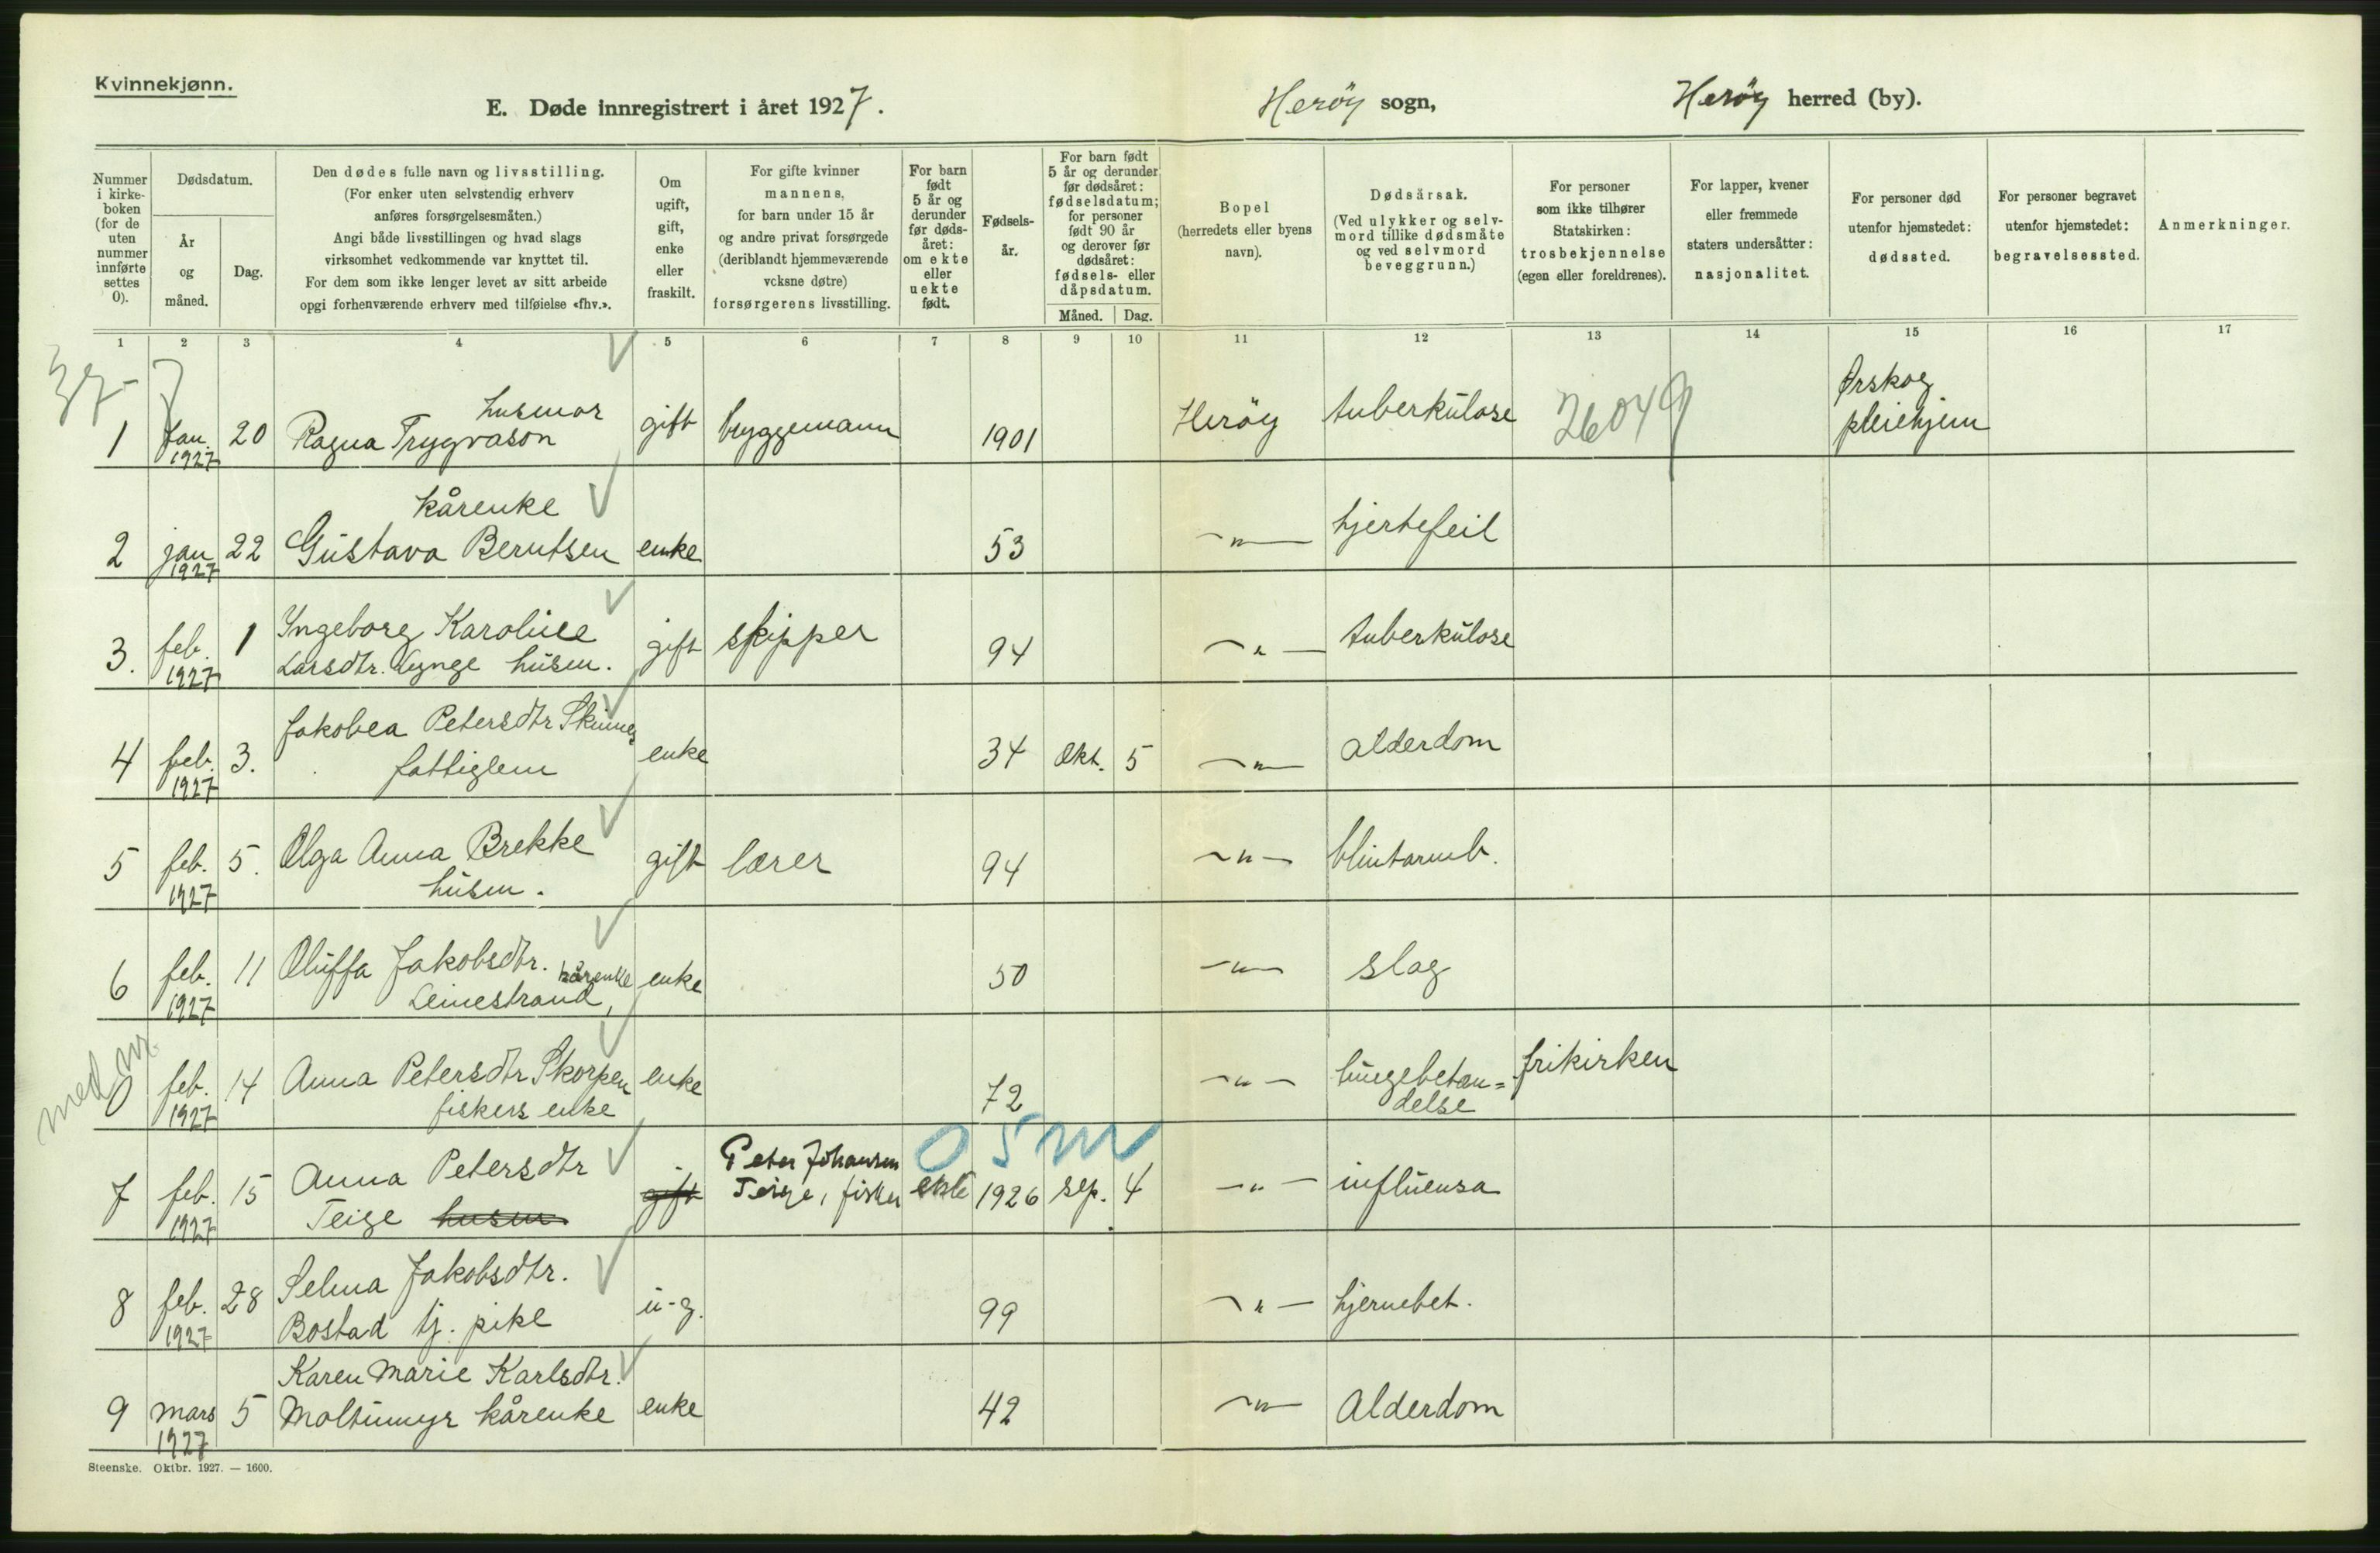 Kvinnekjønn.
E. Døde innregistrert i året 1927.
Herøy sogn,
Herøy herred (by).
Nummer i kirke-boken (for de uten nummer innførte settes 0).
Dødsdatum.
År og måned.
Dag.
Den dødes fulle navn og livsstilling.
(For enker uten selvstendig erhverv
anføres forsørgelsesmåten.)
Angi både livsstillingen og hvad slags
virksomhet vedkommende var knyttet til.
For dem som ikke lenger levet av sitt arbeide
opgi forhenværende erhverv med tilføielse «fhv.».
Om ugift, gift, enke eller fraskilt.
For gifte kvinner
mannens,
for barn under 15 år
og andre privat forsørgede
(deriblandt hjemmeværende
voksne døtre)
forsørgerens livsstilling.
For barn født 5 år og derunder før døds-året: om ekte eller uekte født.
Fødsels-år.
For barn født
5 år og derunder
før dødsåret:
fødselsdatum;
for personer
født 90 år
og derover før
dødsåret:
fødsels- eller
dåpsdatum.
Måned. Dag.
Bopel
(herredets eller byens
navn).
Dødsårsak.
(Ved ulykker og selv-
mord tillike dødsmåte
og ved selvmord
beveggrunn.)
For personer
som ikke tilhører
Statskirken:
trosbekjennelse
(egen eller foreldrenes).
For lapper, kvener
eller fremmede
staters undersåtter:
nasjonalitet.
For personer død
utenfor hjemstedet:
dødssted.
For personer begravet
utenfor hjemstedet:
begravelsessted.
Anmerkninger.
1 2 3 4 5 6 7 8 9 10 11 12 13 14 15 16 17
37-
husmor
1 Jan. 1927 20 Ragna Trygvason gift byggemann 1901 Herøy tuberkulose 26049 Ørskog pleiehjem
kårenke
2 jan 1927 22 Gustava Berntsen enke 53 -"- hjertefeil
3. feb. 1927 1 Ingeborg Karoline
Larsdtr. Lynge husm. gift skipper 94 -"- tuberkulose
4 feb. 1927 3. Jakobea Petersdtr
fattiglem enke 34 Okt. 5 -"- alderdom
5 feb. 1927 5. Olga Anna Brekke
husm. gift lærer 94 -"- blintarmb.
6 feb. 1927 11 Oluffa Jakobsdtr. kårenke
Leinestrand, enke 50 -"- slag
med m.
0 feb. 1927 14 Anna Petersdtr Skorpen
fiskers enke enke 72 -"- lungebetæn=
delse frikirken
0 5 m
7 feb. 1927 15 Anna Petersdtr
Teige husm. gift Peter Johansen
Teige, fisker ekte 1926 sep. 4 -"- influensa
8 feb. 1927 28 Selma Jakobsdtr.
Bostad tj. pike u-g. 99 -"- hjernebet.
9 mars 1927 5 Karen Marie Karlsdtr.
Moltumyr kårenke enke 42 -"- Alderdom
Steenske. Oktbr. 1927. — 1600.